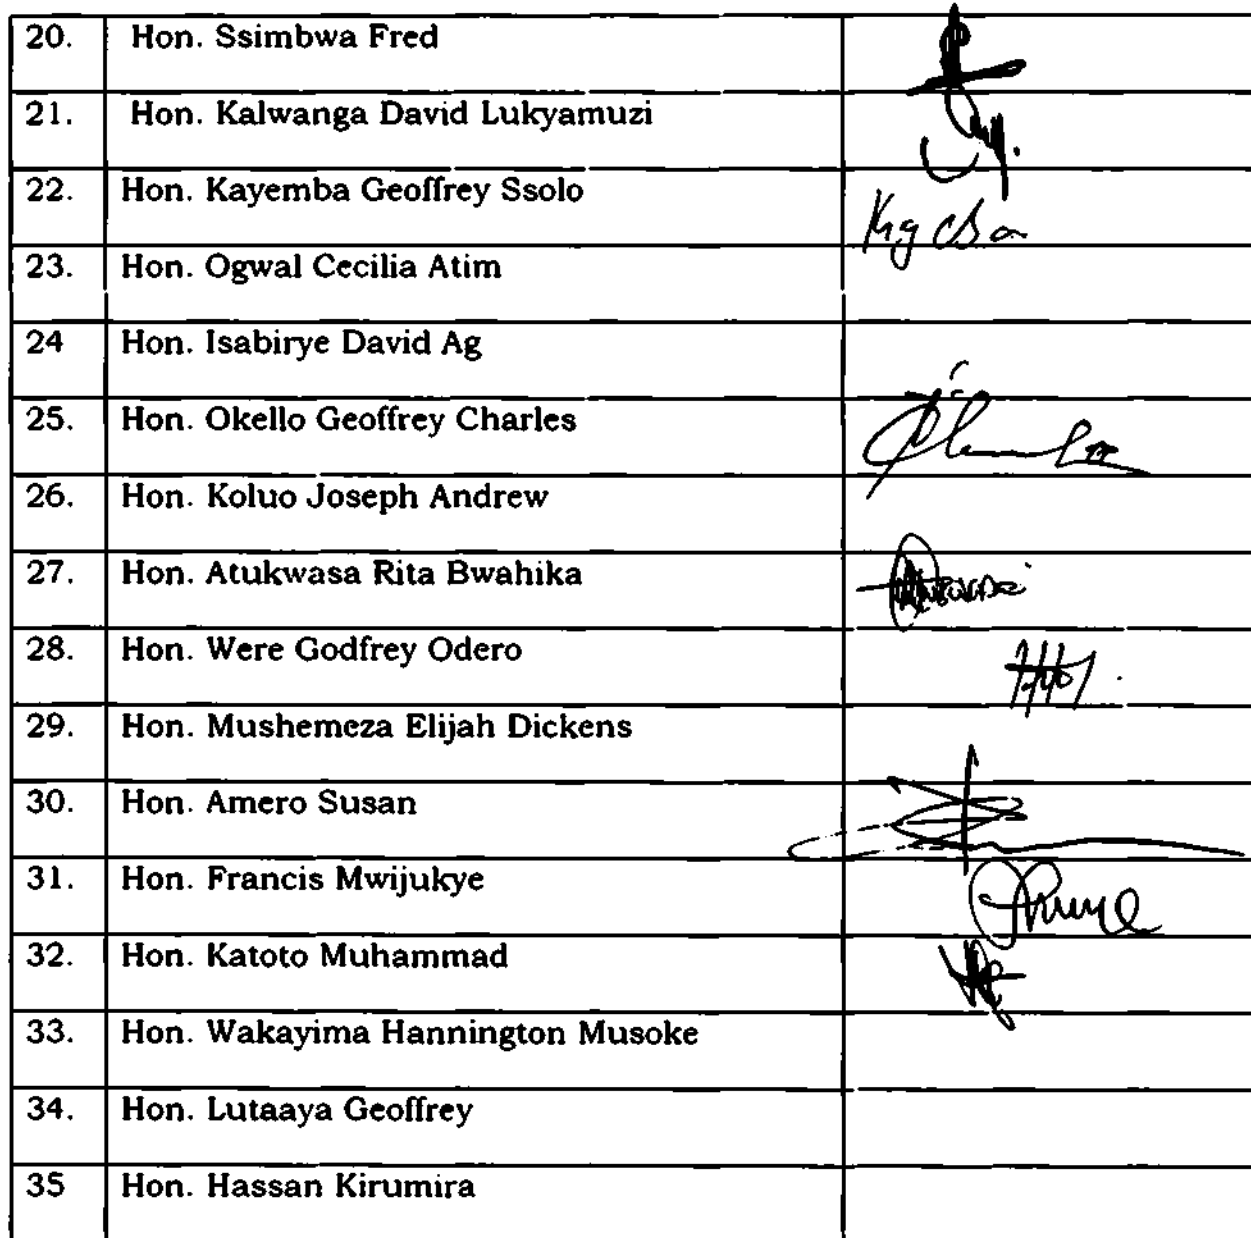 20. Hon. Ssimbwa Fred
21. Hon. Kalwanga David Lukyamuzi
22. Hon. Kayemba Geoffrey Ssolo
23. Hon. Ogwal Cecilia Atim
24 Hon. Isabirye David Ag
25. Hon. Okello Geoffrey Charles
26. Hon. Koluo Joseph Andrew
27. Hon. Atukwasa Rita Bwahika
28. Hon. Were Godfrey Odero
29. Hon. Mushemeza Elijah Dickens
30. Hon. Amero Susan
31. Hon. Francis Mwijukye
32. Hon. Katoto Muhammad
33. Hon. Wakayima Hannington Musoke
34. Hon. Lutaaya Geoffrey
35 Hon. Hassan Kirumira